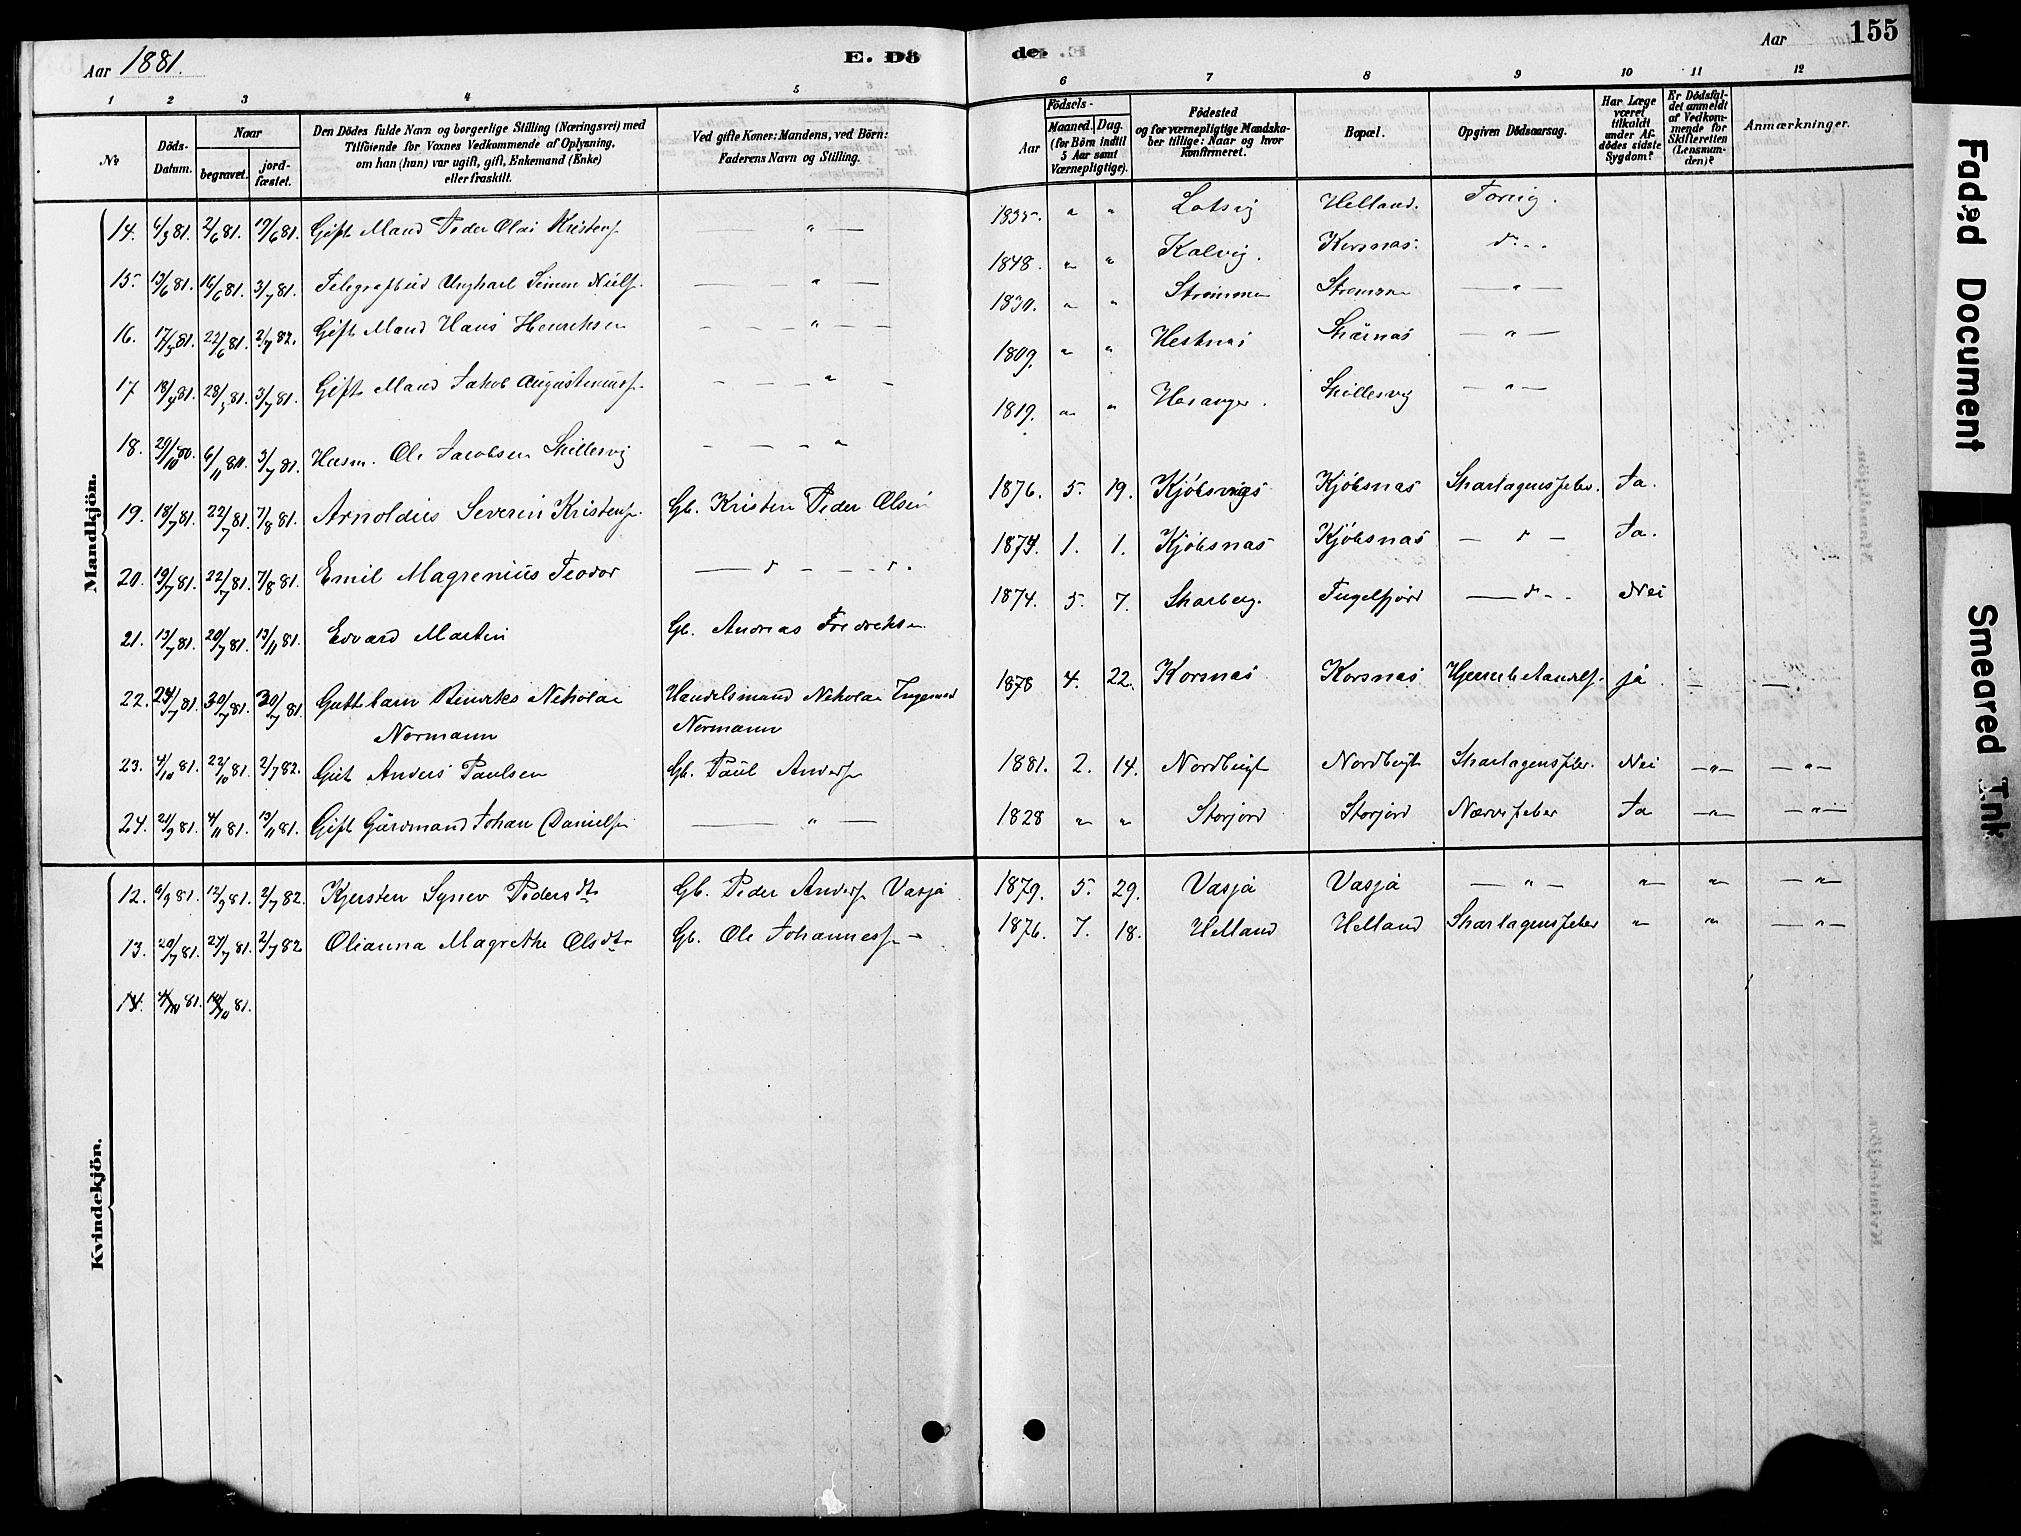 Aar 1881.
E. Dö
de. E.
Aar
155
1 2 3 4 5 6 7 8 9 10 11 12
No
Döds-Datum.
Naar
begravet.
jord-fæstet.
Den Dödes fulde Navn og borgerlige Stilling (Næringsvei) med
Tilföiende for Voxnes Vedkommende af Oplysning,
om han (hun) var ugift, gift, Enkemand (Enke)
eller fraskilt.
Ved gifte Koner: Mandens, ved Börn:
Faderens Navn og Stilling.
Födsels-
Aar
Maaned. Dag.
(for Börn indtil
5 Aar samt
Værnepligtige).
Födested
og for værnepligtige Mandska-
ber tillige: Naar og hvor
Konfirmeret.
Bopæl.
Opgiven Dödsaarsag.
Har Læge
været
tilkaldt
under Af-
dödes sidste
Sygdom?
Er Dödsfal-
det anmeldt
af Vedkom-
mende for
Skifteretten
(Lensman-
den)?
Anmærkninger.
Mandkjön.
14. 6/3 81. 2/6 81. 19/6 81. Gift Mand Peder Olai Kristens. " — 1835. " " Lotvig Helland.
15. 13/6 81. 16/6 81. 3/7 81. Telegrafbud Ungkarl Simon Niels. — " — 1848. " " Kalvig. Korsnas. d
16. 17/5 81. 22/6 81. 2/7 82. Gift Mand Hans Henriksen — " — 1830. " " Strømmen Strømmen — " —
17 18/4 81. 28/5 81. 3/7 81. Gift Mand Jakob Augustinuss. — " — 1809. " " Hestnæs Skarnas — " —
18. 29/10 80. 6/11 80. 3/7 81. Husm. Ole Jacobsen Skillesvig — " 1819. " " Skillesvig — " —
19. 18/7 81. 22/7 81. 7/8 81. Arnoldus Severin Kristens. Gb. Kristen Peder Olsen 1876. 5. 19. Kjøbsnas Kjøbsnas Skarlagensfeber. Ja.
20. 19/7 81. 22/7 81. 7/8 81. Emil Magrenius Teodor — d — d. 1874. 1. 1. Kjøbsnas Kjøbsnas — d — Ja.
21. 13/7 81. 20/7 81. 13/11 81. Edvard Martin Gb. Andreas Fredriksen 1874. 5. 7. Skarberg. Fuglefjord — d — Nei
22. 24/7 81. 30/7 81. 30/7 81. Guttebarn Nikolai Handelsmand Nikolai 1878 4. 22. Korsnas Korsnas ja. — —
Normann Normann
23. 4/10 81. 22/10 81. 2/7 82. Gut Anders Paulsen Gb. Paul Anders. 1881. 2. 14. Nordbugt Nordbugt Skarlagensfeber. Nei — " — — " —
24. 21/9 81. 4/11 81. 13/11 81. Gift Gårdmand Johan Daniels. — " — 1828 " " Storjord Storjord Nervefeber Ja — " — — " —
Kvindekjön.
12. 6/9 81. 12/9 81. 2/7 82. Kjersten Synev Pedersdt. Gb. Peder Anders. Vasja 1879. 5. 29. Vasja Vasja — " — " " — " —
13. 20/7 81. 24/7 81. 2/7 82 Olianna Magrethe Olsdtr Gb. Ole Johanness. — 1876. 7. 18. Helland Helland Skarlagensfeber " " — " —
14. 4/10 81. 14/10 81.
Faded Document
Smeared Ink